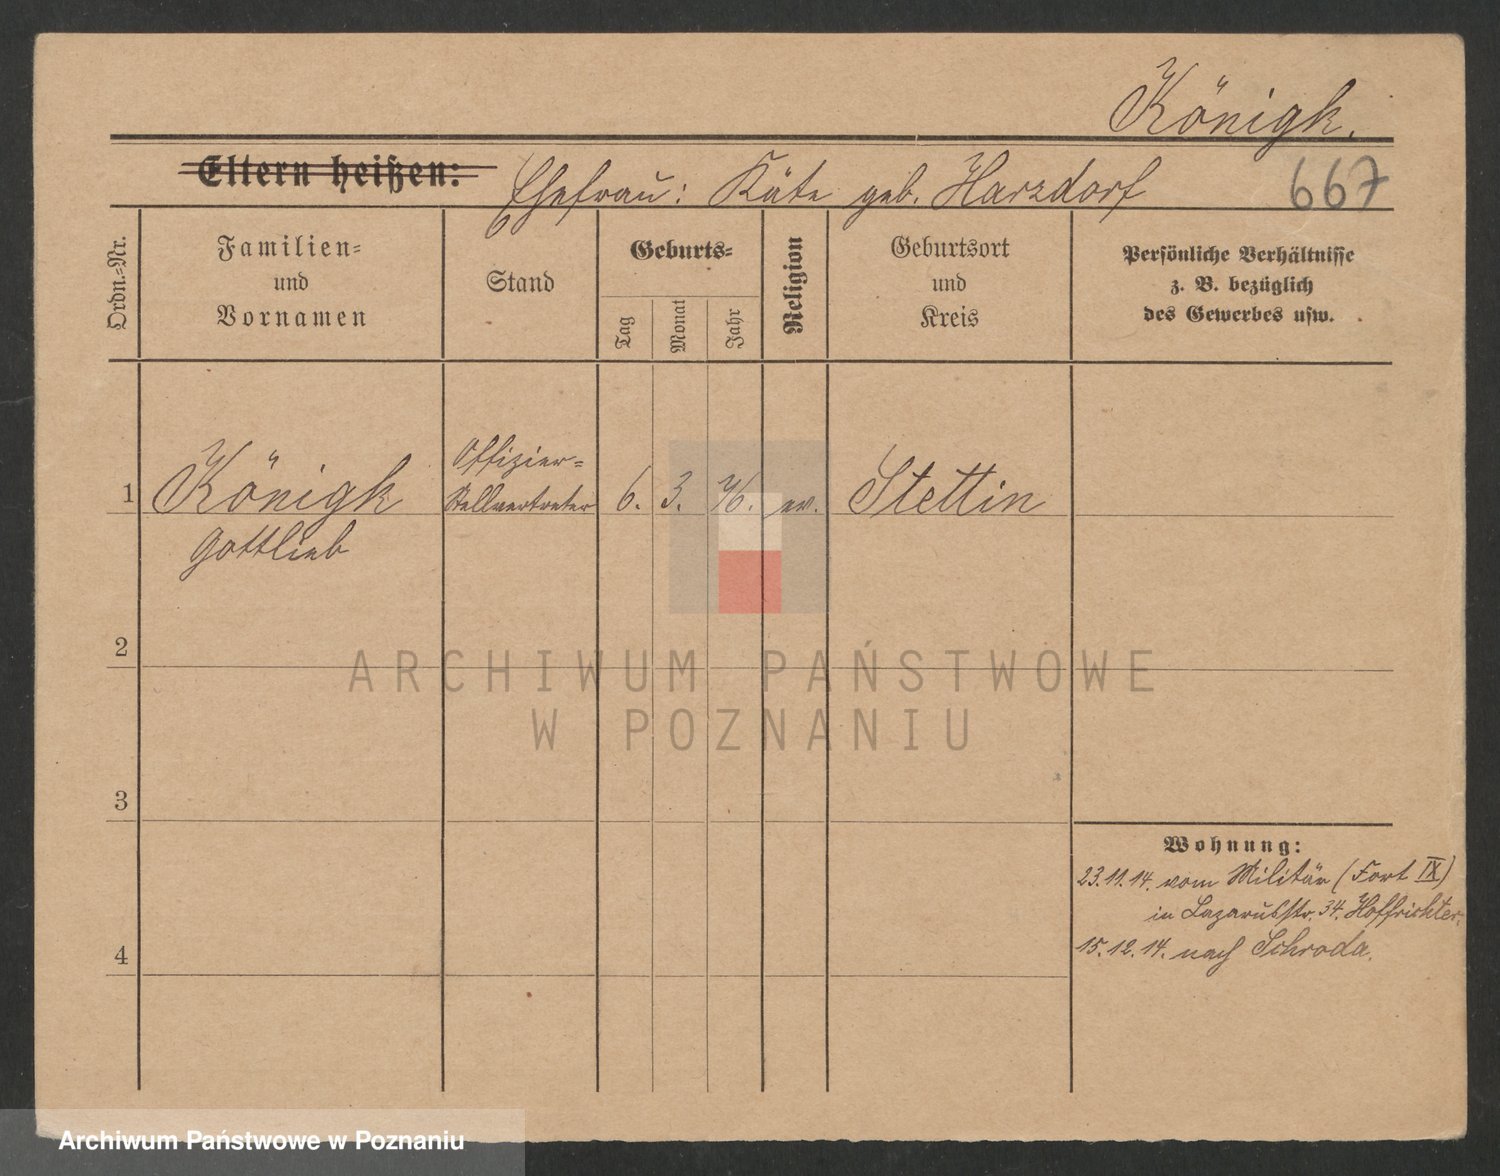 Königk.
Eltern heißen:
Ehefrau: Käte geb. Harzdorf
667
Ordn.-Nr.
Familien-
und
Vornamen
Stand
Geburts-
Tag
Monat
Jahr
Religion
Geburtsort
und
Kreis
Persönliche Verhältnisse
z. B. bezüglich
des Gewerbes usw.
Offizier-
1 Königk Stellvertreter 6. 3. 76. ev. Stettin
Gottlieb
2
ARCHIWUM PAŃSTWOWE
W POZNANIU
3
Wohnung:
23.11.14. vom Militär (Fort IX)
in Lazarusstr. 34. Hoffrichter.
15.12.14. nach Schroda.
4
Archiwum Państwowe w Poznaniu